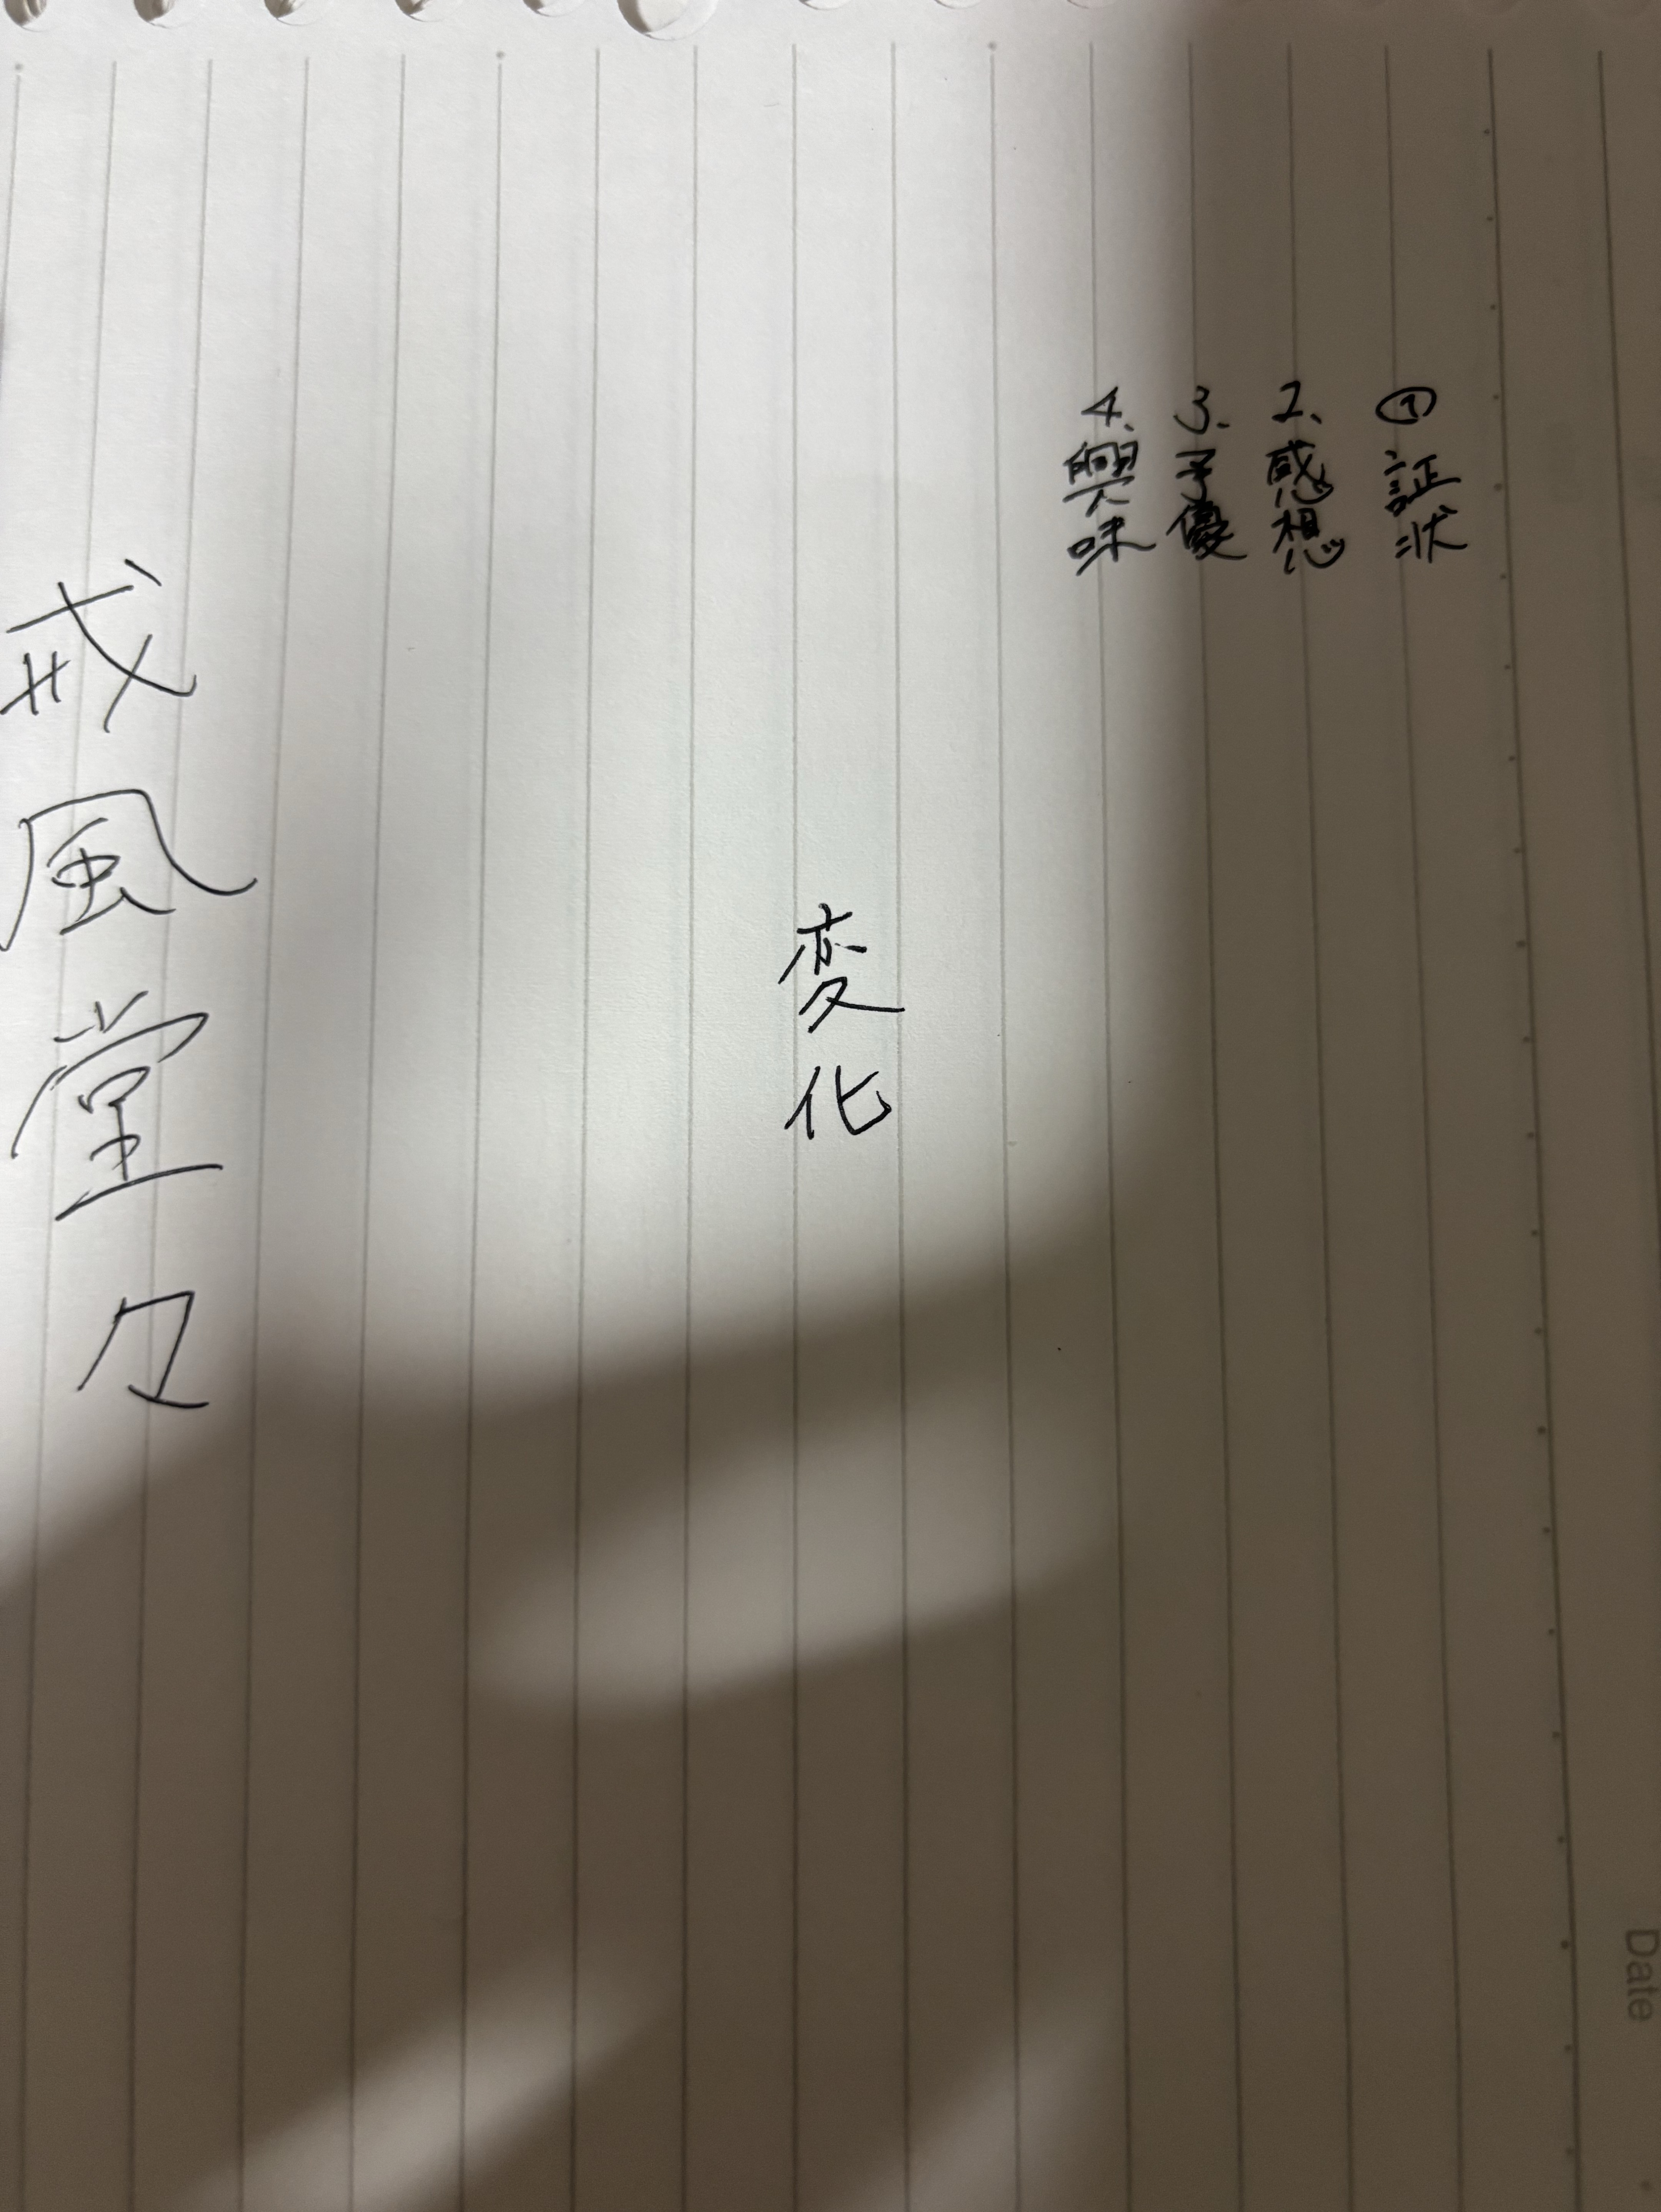 ① 証状
2、感想
3、予優
4、興味
変化
戒風堂々
Date